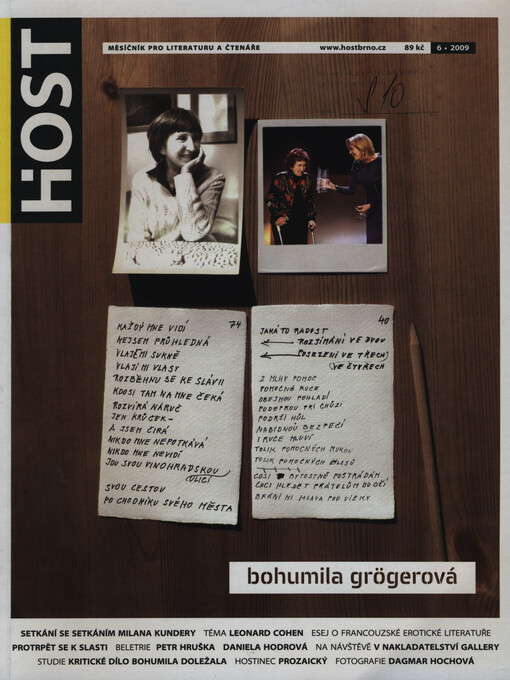 HOST
MĚSÍČNÍK PRO LITERATURU A ČTENÁŘE
www.hostbrno.cz
89 kč
6 • 2009
74
KAŽDÝ MNE VIDÍ
NEJSEM PRŮHLEDNÁ
VLAJE MI SUKNĚ
VLAJÍ MI VLASY
ROZBĚHNU SE KE SLÁVII
KDOSI TAM NA MNE ČEKÁ
ROZVÍRÁ NÁRUČ
JEN KRŮČEK –
A JSEM ČIRÁ
NIKDO MNE NEPOTKÁVÁ
NIKDO MNE NEVIDÍ
JDU SVOU VINOHRADSKOU
ULICÍ
SVOU CESTOU
PO CHODNÍKU SVÉHO MĚSTA
40
JAKÁ TO RADOST
ROZJÍMÁNÍ VE DVOU
POSEZENÍ VE TŘECH
(VE ČTYŘECH
Z MLHY POMOC
POMOCNÉ RUCE
OBEJMOU POHLADÍ
PODEPROU PŘI CHŮZI
PODRŽÍ HŮL
NABÍDNOU BEZPEČÍ
I RUCE MLUVÍ
TOLIK POMOCNÝCH RUKOU
TOLIK POMOCNÝCH HLASŮ
COSI BYTOSTNĚ POSTRÁDÁM
CHCI HLEDĚT PŘÁTELŮM DO OČÍ
BRÁNÍ MI HLAVA POD VÍČKY
bohumila grögerová
SETKÁNÍ SE SETKÁNÍM MILANA KUNDERY TÉMA LEONARD COHEN ESEJ O FRANCOUZSKÉ EROTICKÉ LITERATUŘE
PROTRPĚT SE K SLASTI BELETRIE PETR HRUŠKA DANIELA HODROVÁ NA NÁVŠTĚVĚ V NAKLADATELSTVÍ GALLERY
STUDIE KRITICKÉ DÍLO BOHUMILA DOLEŽALA HOSTINEC PROZAICKÝ FOTOGRAFIE DAGMAR HOCHOVÁ